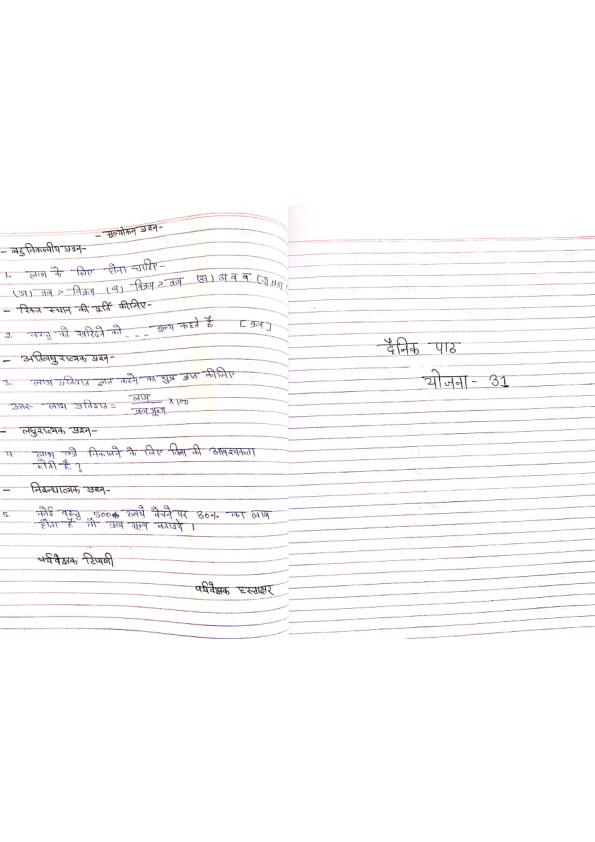 - मूल्यांकन प्रश्न-
- बहु विकल्पीय प्रश्न-
1. लाभ के लिए होना चाहिए-
(अ) क्रय > विक्रय (ब) विक्रय > क्रय (स) अ व ब (द) N.O.T
- रिक्त स्थान की पूर्ति कीजिए-
2. वस्तु को खरिदने को - - - मूल्य कहते है [क्रय]
- अतिलघुरात्मक प्रश्न-
3. लाभ प्रतिशत ज्ञात करने का सूत्र कीजिए
उत्तर- लाभ प्रतिशत = लाभ/क्रय मूल्य X100
- लघुरात्मक प्रश्न-
4 लाभ को निकालने के लिए किस की आवश्यकता
होती है ?
- निबन्धात्मक प्रश्न-
5 कोई वस्तु 500 रूपये बेचने पर 30% का लाभ
होता है तो क्रय मूल्य बताइये ।
पर्यवेक्षक टिप्पणी
पर्यवेक्षक हस्ताक्षर
दैनिक पाठ
योजना - 31